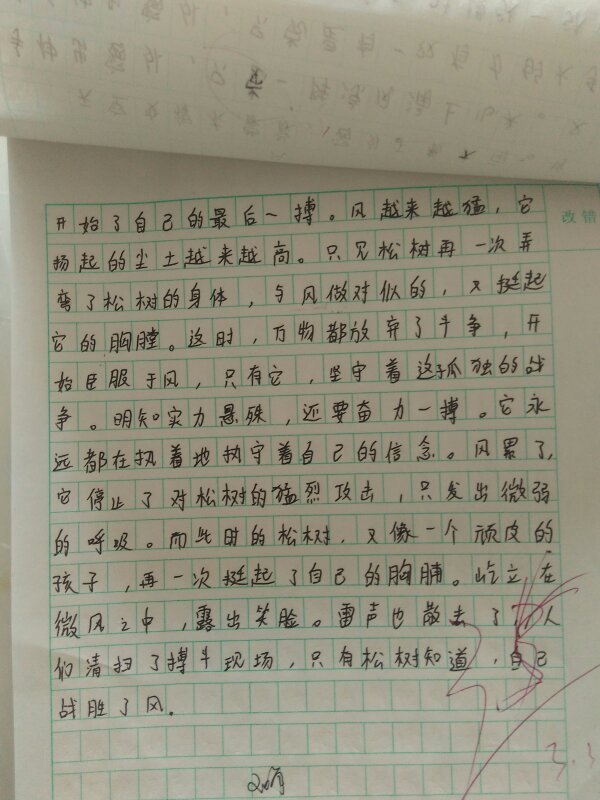 开始了自己的最后一搏。风越来越猛，它
改错
扬起的尘土越来越高。只见松树再一次弄
弯了松树的身体，与风做对似的，又挺起
它的胸膛。这时，万物都放弃了斗争，开
始臣服于风，只有它，坚守着这孤独的战
争。明知实力悬殊，还要奋力一搏。它永
远都在执着地执守着自己的信念。风累了，
它停止了对松树的猛烈攻击，只发出微弱
的呼吸。而此时的松树，又像一个顽皮的
孩子，再一次挺起了自己的胸脯。屹立在
微风之中，露出笑脸。雷声也散去了 人
们清扫了搏斗现场，只有松树知道，自己
战胜了风。
3.3